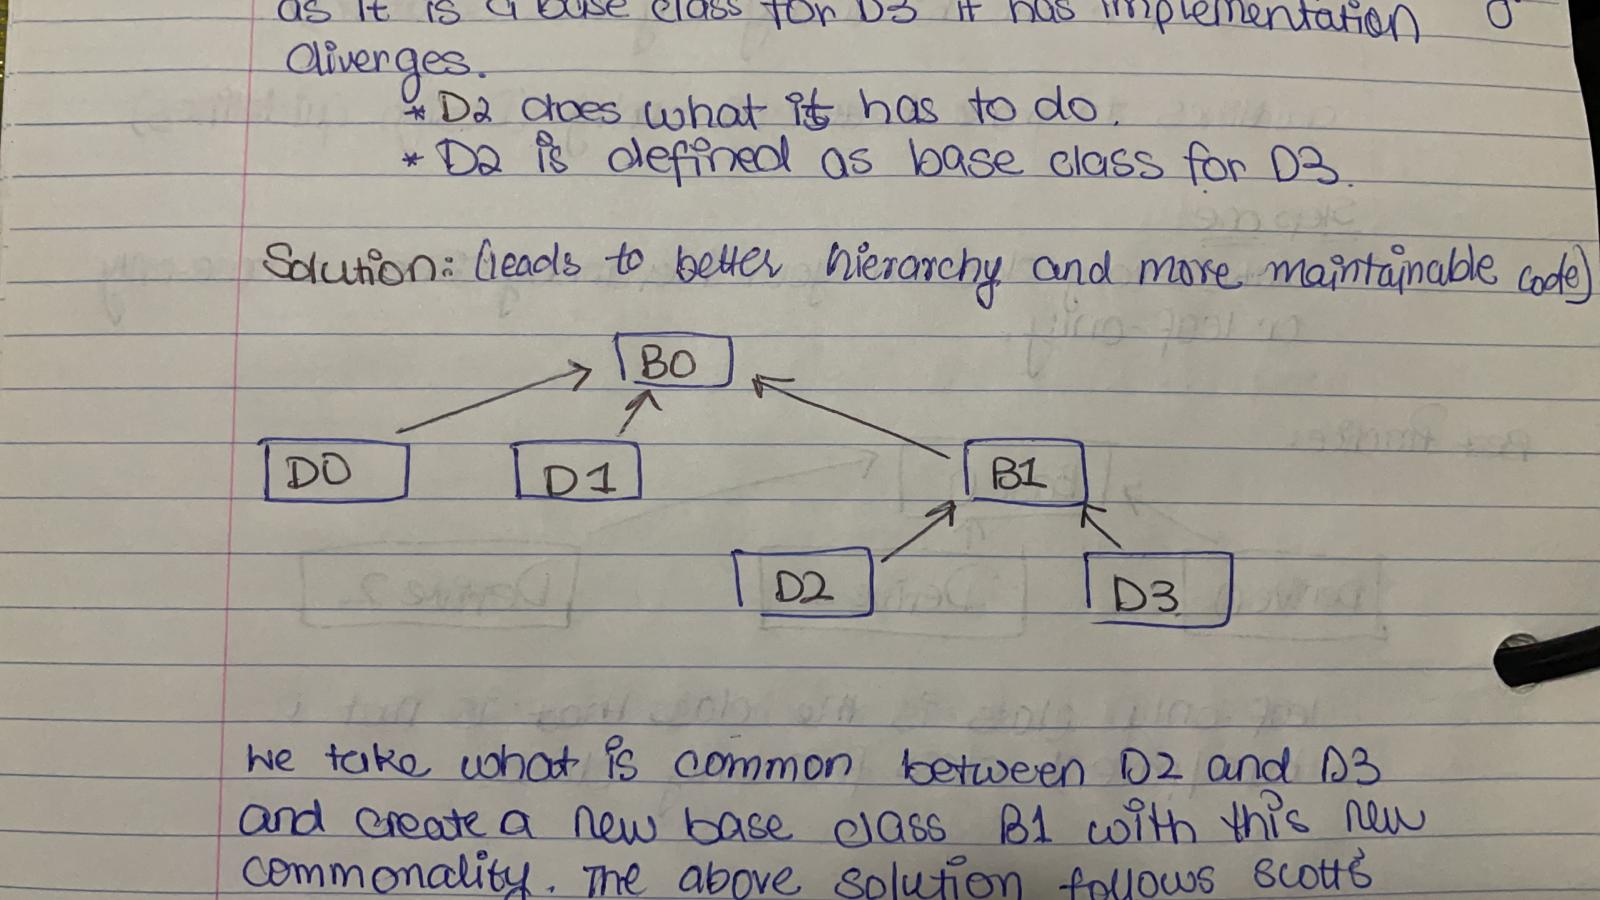 as it is a base class for D3 it has implementation
diverges.
* D2 does what it has to do.
* D2 is defined as base class for D3.
Solution: (leads to better hierarchy and more maintainable code)
B0
D0 D1 B1
D2 D3
We take what is common between D2 and D3
and create a new base class B1 with this new
commonality. The above solution follows scott's